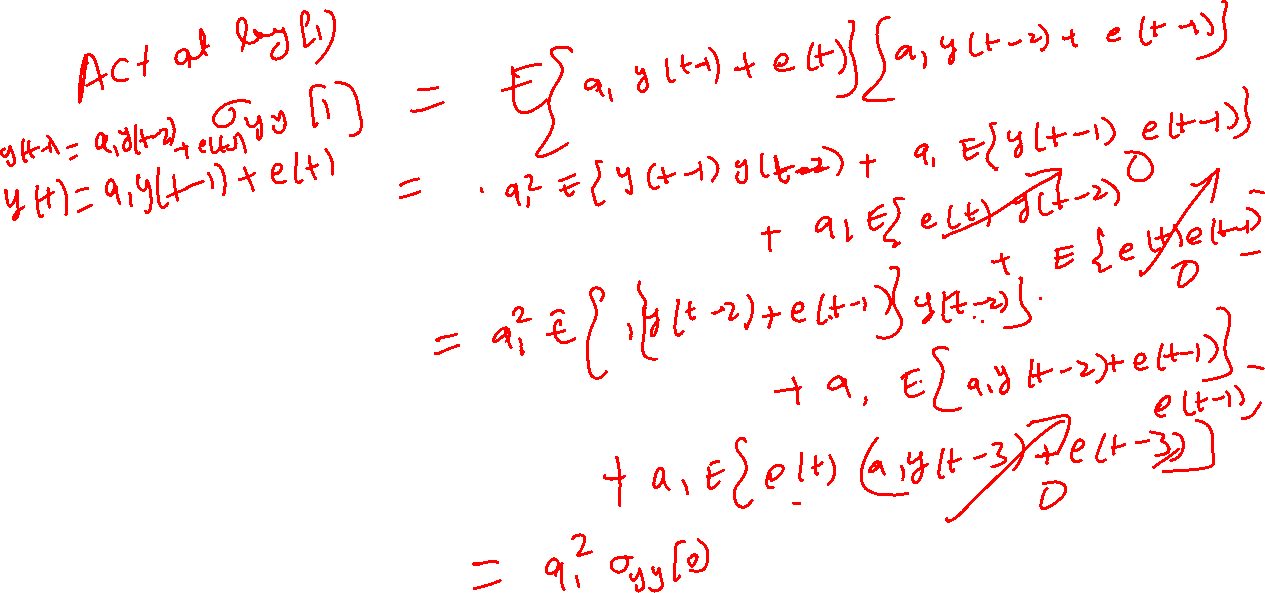 ACf at lag(1)
σyy[1] = E{a₁ y(t-1) + e(t)}{a₁ y(t-2) + e(t-1)}
y(t-1) = a₁y(t-2) + e(t-1)
y(t) = a₁y(t-1) + e(t)
= a₁² E{y(t-1) y(t-2) + a₁ E{y(t-1) e(t-1)}
+ a₁ E{e(t) y(t-2) 0
+ E{e(t)e(t-1) 0
= a₁² E{ {y(t-2) + e(t-1)} y(t-2)}.
+ a₁ E{a₁y(t-2) + e(t-1)}
e(t-1)
+ a₁ E{e(t) (a₁y(t-3) + e(t-3))} 0
= a₁² σyy[0]